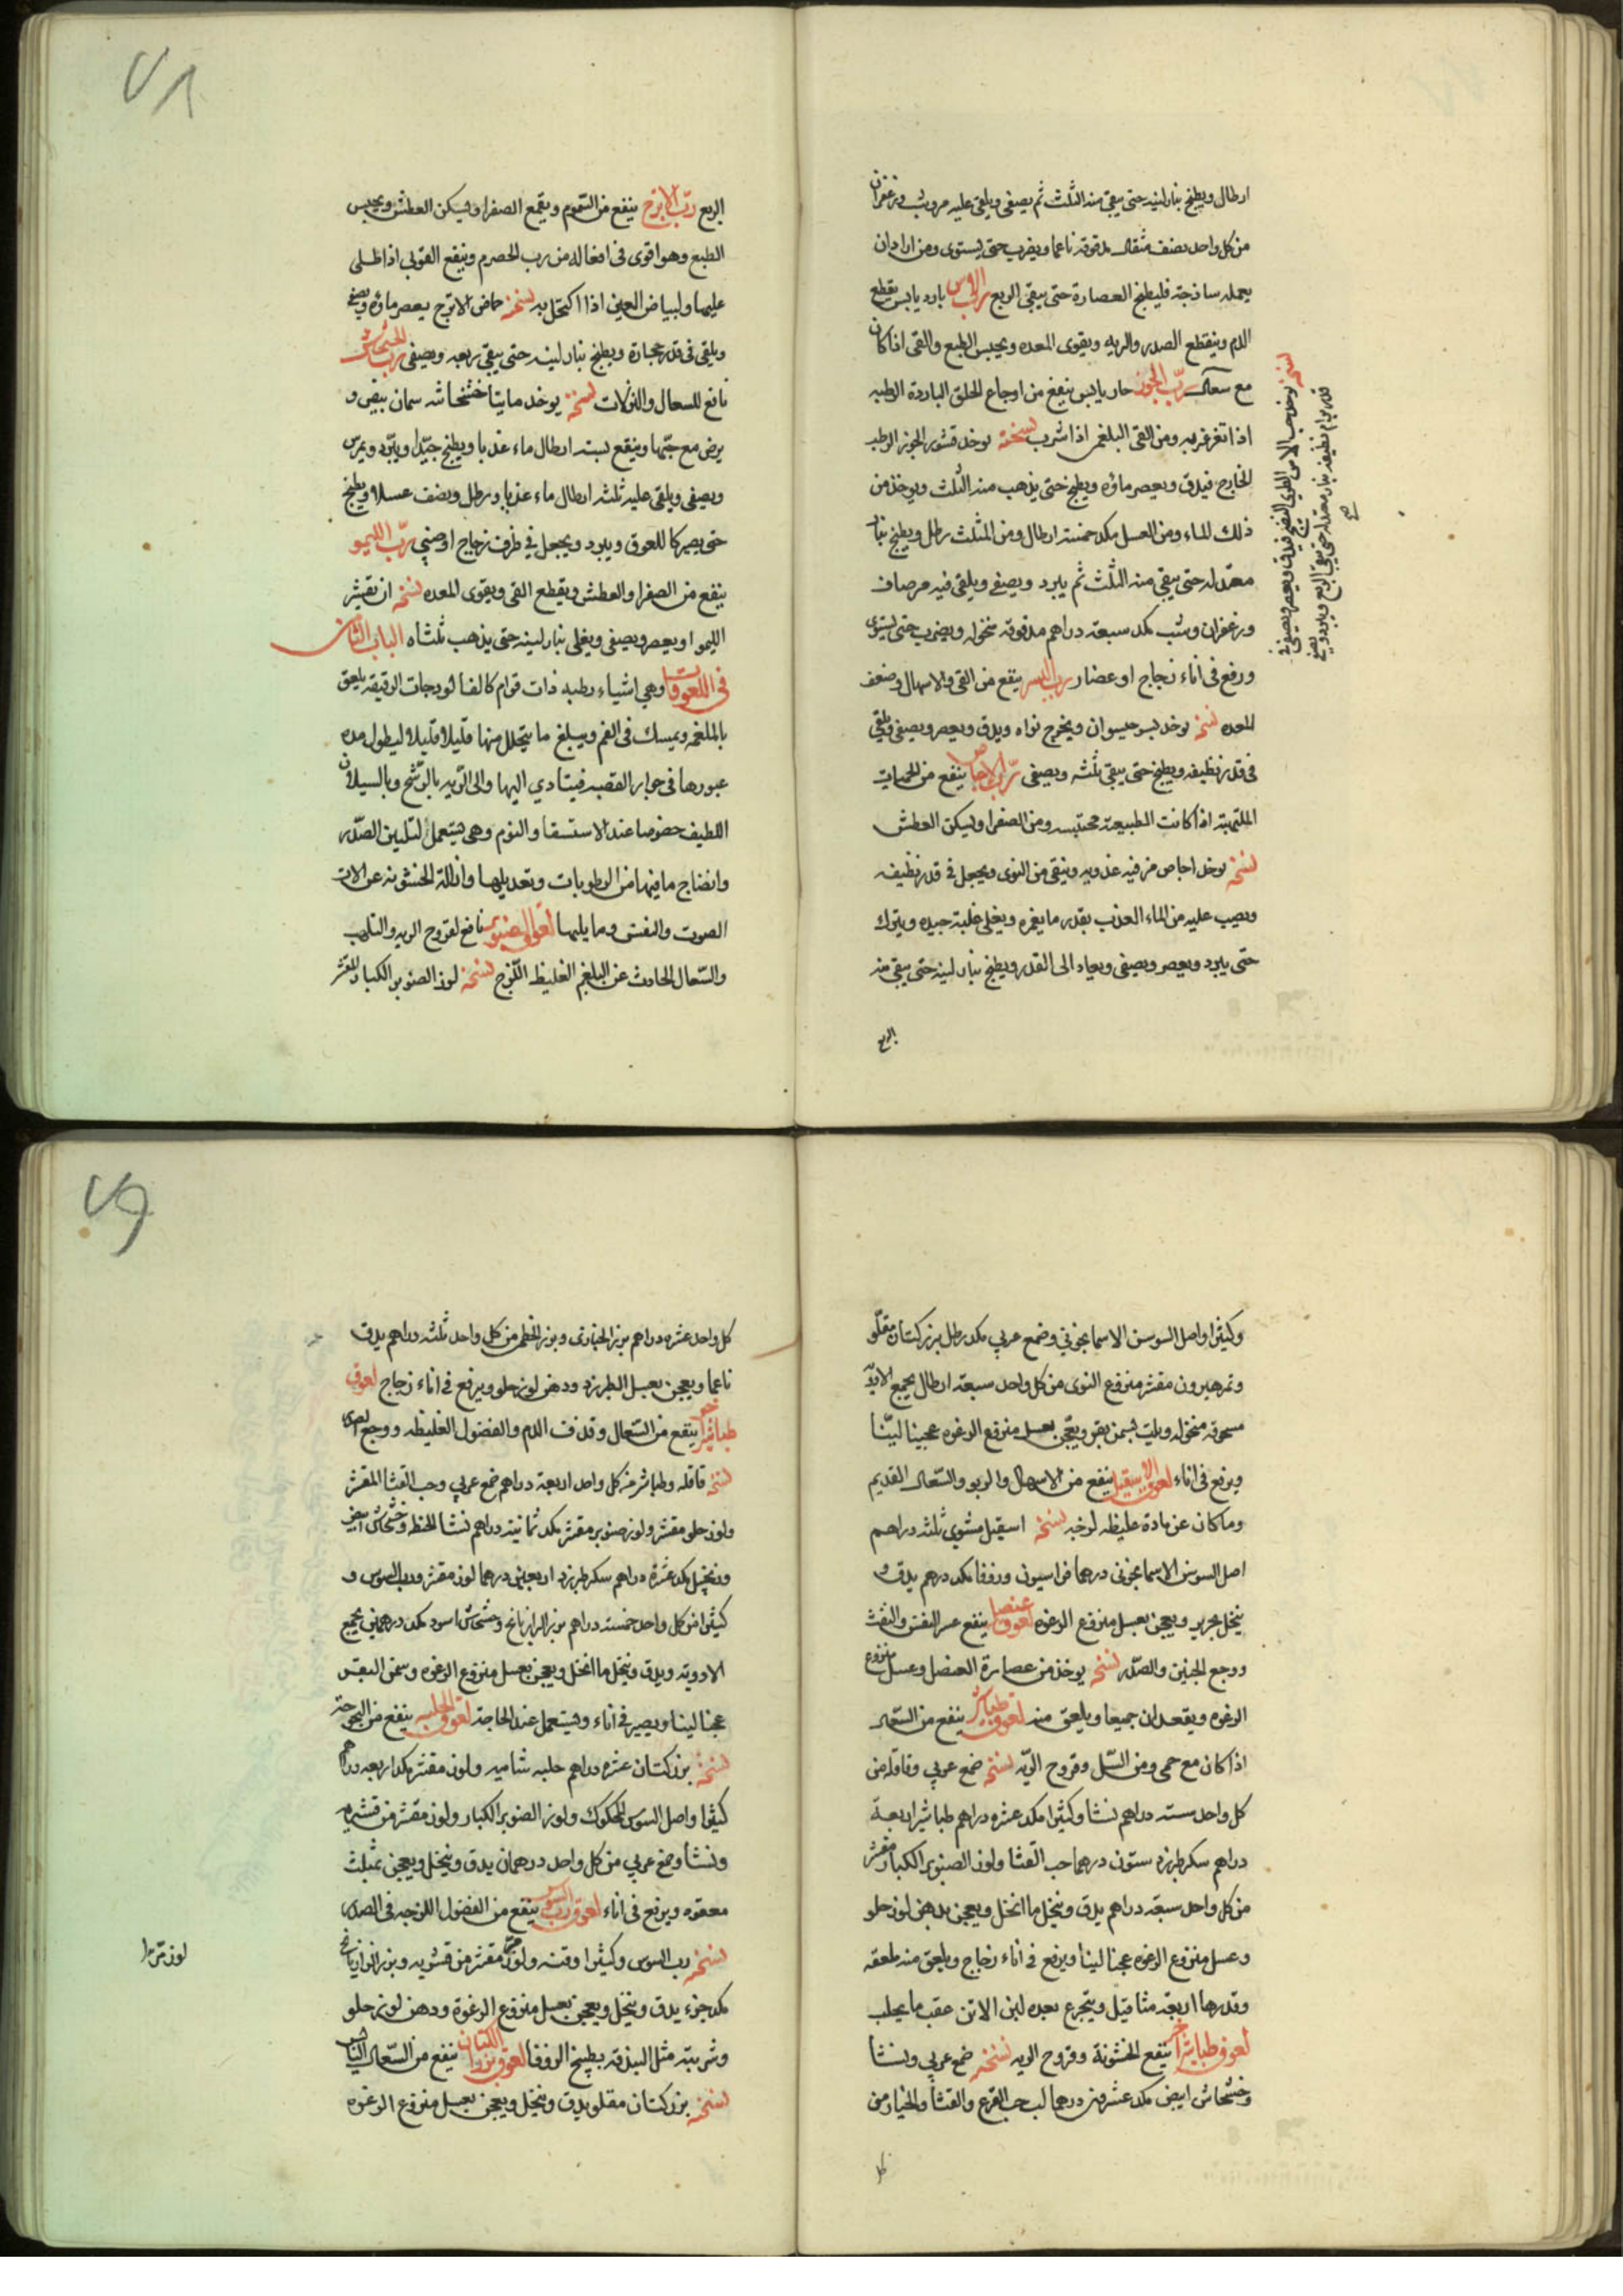 ارطال ويطبخ بنار لينه حتى يبقى منه الثلث ثم يصفى ويلقى عليه مر وشب وزعفران
من كل واحد نصف مثقال مدقوقة ناعما ويضرب حتى يستوى ومن اراد ان
يعمله ساذجة فليطبخ العصارة حتى يبقى الربع رب الاس بارد يابس يقطع
الدم وينفع الصدر والريه ويقوى المعده ويحبس الطبع والقى اذا كان
مع سعال رب الجوز حار يابس ينفع من اوجاع الحلق الباردة الرطبه
اذا تغرغر به ومن القى البلغمى اذا شرب نسخته يوخذ قشور الجوز الرطبه
الخارج فيدق ويعصر ماؤه ويطبخ حتى يذهب منه الثلث ويوخذ من
ذلك الماء ومن العسل مكد خمسة ارطال ومن المثلث رطل ويطبخ بنار
معتدله حتى يبقى منه الثلث ثم يبرد ويصفى ويلقى فيه مر صاف
وزعفران وشب مكد سبعة دراهم مدقوقة منخوله ويضرب حتى يستوى
ورفع فى اناء زجاج او غضار رب البسر ينفع من القى والاسهال وضعف
المعده نسخته يوخذ بسر جيسوان ويخرج نواه ويدق ويعصر ويصفى ويلقى
فى قدر نظيفه ويطبخ حتى يبقى ثلثه ويصفى رب الاجاص ينفع من الحميات
الملتهبة اذا كانت الطبيعة محتبسه ومن الصفرا ويسكن العطش
نسخته يوخذ اجاص مز فيه عذوبه وينقى من النوى ويجعل فى قدر نظيفه
ويصب عليه من الماء العذب بقدر ما يغمره ويغلى غلية جيده ويترك
حتى يبرد ويعصر ويصفى ويعاد الى القدر ويطبخ بنار لينه حتى يبقى منه
الربع
نسخته يوخذ حب الاس الطرى النضيج فيدق ويعصر ويصفى فى
قدر برام نظيفه بنار معتدله حتى يبقى الربع ويبرد ويصفى
صح
٧٨
الربع رب الاترج ينفع من السموم ويقمع الصفرا ويسكن العطش ويحبس
الطبع وهو اقوى فى افعاله من رب الحصرم وينفع القوبى اذا طلى
عليها ولبياض العين اذا اكتحل به نسخته حماض الاترج يعصر ماؤه ويصفى
ويلقى فى قدر حجارة ويطبخ بنار لينه حتى يبقى ربعه ويصفى رب الخشخاش
نافع للسعال والنزلات نسخته يوخذ مايتا خشخاشه سمان بيض و
يرض مع حبها وينقع بستة ارطال ماء عذبا ويطبخ جيدا ويبرد ويمرس
ويصفى ويلقى عليه ثلثه ارطال ماء عذبا ورطل ونصف عسلا ويطبخ
حتى يصير كاللعوق ويبرد ويجعل فى ظرف زجاج او صينى رب الليمو
ينفع من الصفرا والعطش ويقطع القى ويقوى المعده نسخته ان يقشر
الليموا ويعصر ويصفى ويغلى بنار لينه حتى يذهب ثلثاه الباب الثامن
فى اللعوقات وهى اشياء رطبه ذات قوام كالفالوذجات الرقيقه يلعق
بالملعقه ويمسك فى الفم ويبلع ما يتحلل منها قليلا قليلا ليطول مده
عبورها فى جوار القصبه فيتادي اليها والى الريه بالرشح وبالسيلان
اللطيف خصوصا عند الاستسقا والنوم وهى يستعمل لتليين الصدر
وانضاج ما فيها من الرطوبات وتعديلها وازالة الخشونه عن الات
الصوت والنفس وما يليها لعوق الصنوبر نافع لقروح الريه والتلهب
والسعال الحادث عن البلغم الغليظ اللزج نسخته لوز الصنوبر الكبار المقشر
وكثيرا واصل السوسن الاسمانجونى وصمغ عربي مكد رطل بزر كتان مقلو
وتمر هيرون مقشر منزوع النوى من كل واحد سبعة ارطال يجمع الادوية
مسحوقة منخوله ويلت بسمن بقر ويعجن بعسل منزوع الرغوه عجينا لينا
ويرفع فى اناء لعوق الاسقيل ينفع من الاسهال والربو والسعال القديم
وما كان عن مادة غليظه لزجه نسخته اسقيل مشوى ثلثه دراهم
اصل السوسن الاسمانجونى درهما فراسيون وزوفا مكد درهم يدق و
ينخل بحرير ويعجن بعسل منزوع الرغوه لعوق عنصل ينفع عسر النفس والنفث
ووجع الجنبين والصدر نسخته يوخذ من عصارة العنصل وعسل منزوع
الرغوه ويعقدان جميعا ويلعق منه لعوق طباشير ينفع من السعال
اذا كان مع حمى ومن السل وقروح الريه نسخته صمغ عربي وقاقله من
كل واحد سته دراهم نشا وكثيرا مكد عشره دراهم طباشير اربعة
دراهم سكر طبرزد ستون درهما حب القثا ولوز الصنوبر الكبار مقشر
من كل واحد سبعة دراهم يدق وينخل ما انخل ويعجن بدهن لوز حلو
وعسل منزوع الرغوه عجنا لينا ويرفع فى اناء زجاج ويلعق منه ملعقه
وقدرها اربعة مثاقيل ويتجرع بعده لبن الاتن عقب ما يحلب
لعوق طباشير اخر ينفع الخشونة وقروح الريه نسخته صمغ عربي ونشا
وخشخاش ابيض مكد عشرون درهما لب حب القرع والقثا والخيار من
كل
٧٩
كل واحد عشره دراهم بزر الخبازى وبزر الخطمى من كل واحد ثلثه دراهم يدق
ناعما ويعجن بعسل الطبرزد ودهن لوز حلو ويرفع فى اناء زجاج لعوق
طباشير اخر ينفع من السعال وقذف الدم والفضول الغليظه ووجع
نسخته قاقله وطباشير من كل واحد اربعة دراهم صمغ عربي وحب القثا المقشر
ولوز حلو مقشر ولوز صنوبر مقشر مكد ثمانية دراهم نشا الحنطه وخشخاش ابيض
وزنجبيل مكد عشرة دراهم سكر طبرزد اربعين درهما لوز مقشر ورب السوس و
كثيرا من كل واحد خمسة دراهم بزر الرازيانج وخشخاش اسود مكد درهمين يجمع
الادويه ويدق وينخل ما انخل ويعجن بعسل منزوع الرغوه وسمن البقر
عجنا لينا ويصير فى اناء ويستعمل عند الحاجة لعوق الحلبه ينفع من البحوحة
نسخته بزر كتان عشره دراهم حلبه شاميه ولوز مقشر مكد اربعه دراهم
كثيرا واصل السوس المحكوك ولوز الصنوبر الكبار ولوز مقشر من قشريه
ونشا وصمغ عربي من كل واحد درهمان يدق وينخل ويعجن بمثلث
معقود ويرفع فى اناء لعوق رب السوس ينفع من الفضول اللزجه فى الصدر
نسخته رب السوس وكثيرا وقته ولوز مر مقشر من قشريه وبزر الرازيانج
مكد جزء يدق وينخل ويعجن بعسل منزوع الرغوة ودهن لوز حلو
وشربته مثل البندقه بطبيخ الزوفا لعوق بزر الكتان ينفع من السعال
نسخته بزر كتان مقلو يدق وينخل ويعجن بعسل منزوع الرغوه